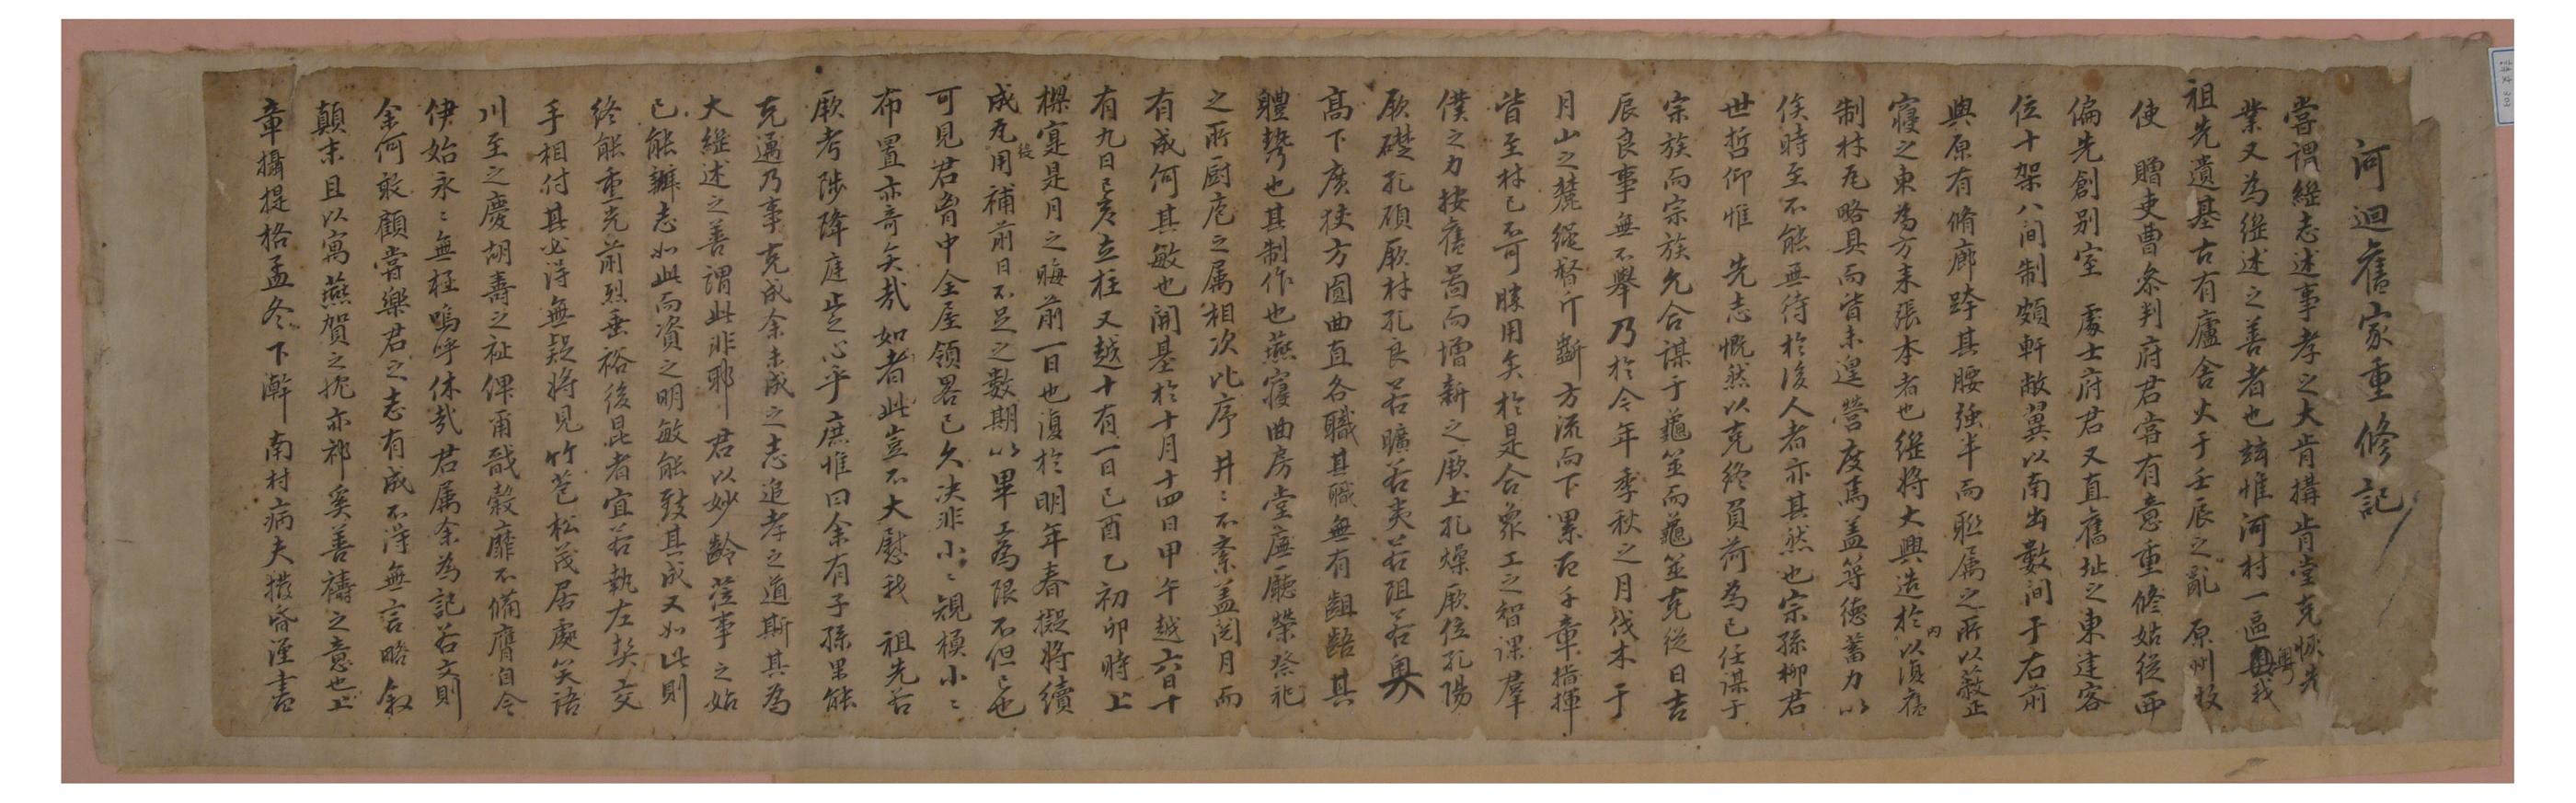 河迴舊家重修記
嘗謂繼志述事孝之大肯搆肯堂克恢先
業又爲繼述之善者也玆惟河村一區粤我
祖先遺基古有廬舍火于壬辰之亂 原州牧
使 贈吏曹叅判府君嘗有意重修姑從西
偏先創別室 處士府君又直舊址之東建客
位十架八間制頗軒敞翼以南出數間于右前
與原有脩廊跨其腰強半而聯属之所以蔽正
寢之東爲方来張本者也継將大興造於內以復舊
制材瓦略具而皆未遑營度焉盖等德蓄力以
俟時至不能無待於後人者亦其然也宗孫柳君
世哲仰惟 先志慨然以克終負荷爲己任謀于
宗族而宗族允合謀于龜筮而龜筮克從日吉
辰良事無不擧乃於今年季秋之月伐木于
月山之麓經督斤斲方流而下累百千章指揮
皆至材已不可勝用矣於是合衆工之智課羣
僕之力按舊啚而增新之厥土孔燥厥位孔陽
厥礎孔碩厥材孔良若曠若夷若阻若奥
高下廣狹方圓曲直各職其職無有齟齬其
軆勢也其制作也燕寢曲房堂廡廳榮祭祀
之所厨庖之属相次比序井〻不紊盖閱月而
有成何其敏也開基於十月十四日甲午越六日十
有九日己亥立柱又越十有一日己酉乙初卯時上
樑寔是月之晦前一日也復於明年春擬將續
成瓦役用補前日不足之數期以畢工爲限不但已也
可見君胷中全屋領畧已久决非小〻規模小〻
布置亦竒矣哉如者此豈不大慰我 祖先若
厥考陟降庭止之心乎庶惟曰余有子孫果能
克遹乃事克成余未成之志追孝之道斯其爲
大繼述之善謂此非耶 君以妙齡莅事之始
已能辦志如此而資之明敏能致其成又如此則
終能重光前烈垂裕後昆者宜若執左契交
手相付其必得無疑將見竹苞松茂居處笑語
川至之慶胡壽之祉俾爾戩穀靡不備膺自今
伊始永〻無極嗚呼休哉君属余爲記若文則
余何敢顧嘗樂君之志有成不得無言略叙
顛末且以寓燕賀之忱亦祁奚善禱之意也上
章攝提格孟冬下澣南村病夫撥昏謹書